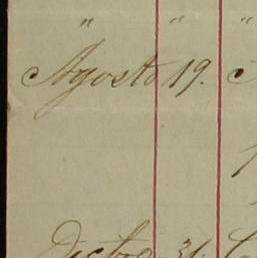 " " "
Agosto 19.
Dictbre 31.